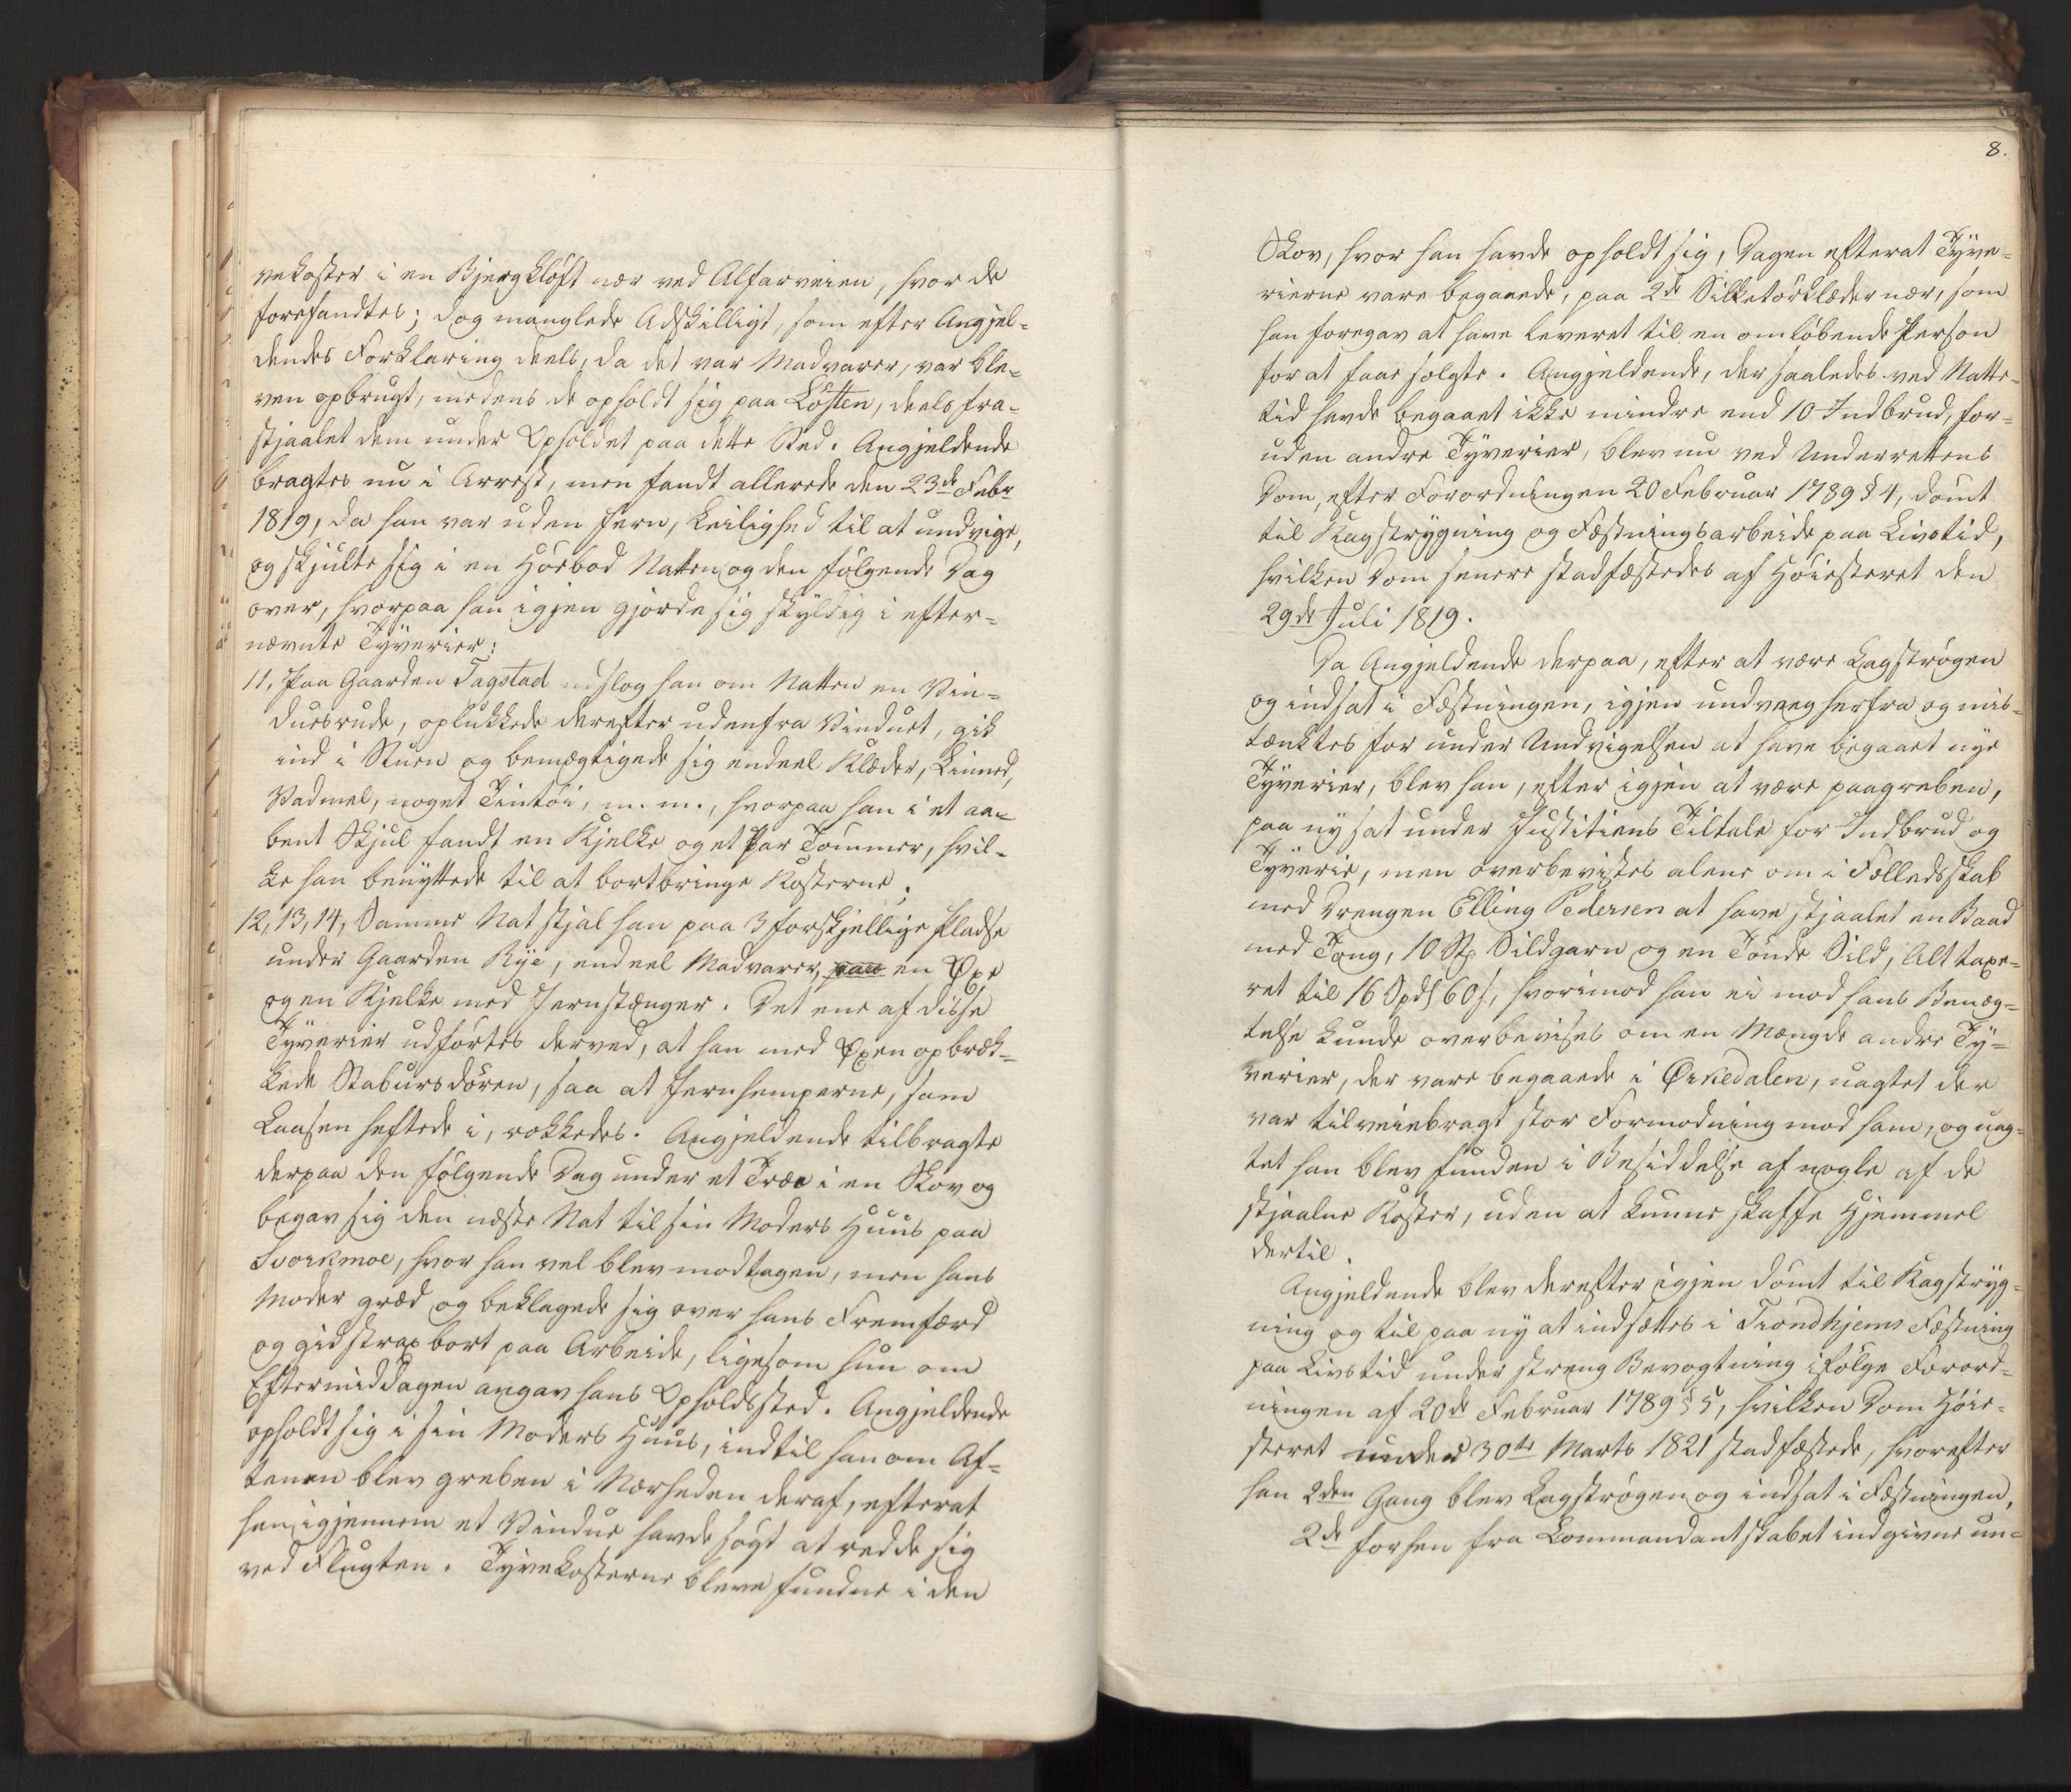 vekoster i en Bjergkløft nær ved Alfarveien, hvor de
forefandtes; dog manglede Adskilligt, som efter Angjel-
dendes Forklaring deels, da det var Madvarer, var ble-
ven opbrugt, medens de opholdt sig paa Løften, deels fra-
stjaalet dem under Opholdet paa dette Sted. Angjeldende
bragtes nu i Arrest, men fandt allerede den 23de Febr
1819, da han var uden Jern, Leilighed til at undvige,
og skjulte sig i en Høebod Natten og den følgende Dag
over, hvorpaa han igjen gjorde sig skyldig i efter-
nævnte Tyverier:
11, Paa Gaarden Tagstad udslog han om Natten en Vin-
duesrude, oplukkede derefter udenfra Vinduet, gik
ind i Stuen og bemægtigede sig endeel Klæder, Linned,
Vadmel, noget Tintøi, m. m., hvorpaa han i et aa-
bent Skjul fandt en Kjelke og et Par Tømmer, hvil-
ke han benyttede til at bortbringe Kosterne;
12, 13, 14, Samme Nat stjal han paa 3 forskjellige Pladse
under Gaarden Rye, endeel Madvarer, paa en Øxe
og en Kjelke med Jernstænger. Det ene af disse
Tyverier udførtes derved, at han med Øxen opbræk-
kede Stabursdøren, saa at Jernhemperne, som
Laasen heftede i, rokkedes. Angjeldende tilbragte
derpaa den følgende Dag under et Træe i en Skov og
begav sig den næste Nat til sin Moders Huus paa
Svorkmoe, hvor han vel blev modtagen, men hans
Moder græd og beklagede sig over hans Fremfærd
og gik strax bort paa Arbeide, ligesom hun om
Eftermiddagen angav hans Opholdssted. Angjeldende
opholdt sig i sin Moders Huus, indtil han om Af-
tenen blev greben i Nærheden deraf, efterat
han igjennem et Vindue havde søgt at redde sig
ved Flugten. Tyvekosterne bleve fundne i den
8.
Skov, hvor han havde opholdt sig, Dagen efterat Tyve-
rierne vare begaaede, paa 2de Silketørklæder nær, som
han foregav at have leveret til en omløbende Person
for at faae solgte. Angjeldende, der saaledes ved Natte-
tid havde begaaet ikke mindre end 10 Indbrud, for-
uden andre Tyverier, blev nu ved Underrettens
Dom, efter Forordningen 20 Februar 1789 § 4, dømt
til Kagstrygning og Fæstningsarbeide paa Livstid,
hvilken Dom senere stadfæstedes af Høiesteret den
29de Juli 1819.
Da Angjeldende derpaa, efter at være kagstrøgen
og indsat i Fæstningen, igjen undveeg herfra og mis-
tænktes for under Undvigelsen at have begaaet nye
Tyverier, blev han, efter igjen at være paagreben,
paa ny sat under Justitiens Tiltale for Indbrud og
Tyverie, men overbevistes alene om i Fælledsskab
med Drengen Elling Pedersen at have stjaalet en Baad
med Toug, 10 St. Sildgarn og en Tønde Sild, Alt taxe-
ret til 16 Spd 60 s, hvorimod han ei mod hans Benæg-
telse kunde overbevises om en Mængde andre Ty-
verier, der vare begaaede i Ørkedalen, uagtet der
var tilveiebragt stor Formodning mod ham, og uag-
tet han blev funden i Besiddelse af nogle af de
stjaalne Koster, uden at kunne skaffe Hjemmel
dertil.
Angjeldende blev derefter igjen dømt til Kagstryg-
ning og til paa ny at indsættes i Trondhjems Fæstning
paa Livstid under streng Bevogtning ifølge Forord-
ningen af 20de Februar 1789 § 5, hvilken Dom Høie-
steret under 30te Marts 1821 stadfæstede, hvorefter
han 2den Gang blev kagstrøgen og indsat i Fæstningen,
2de forhen fra Commandantskabet indgivne un-